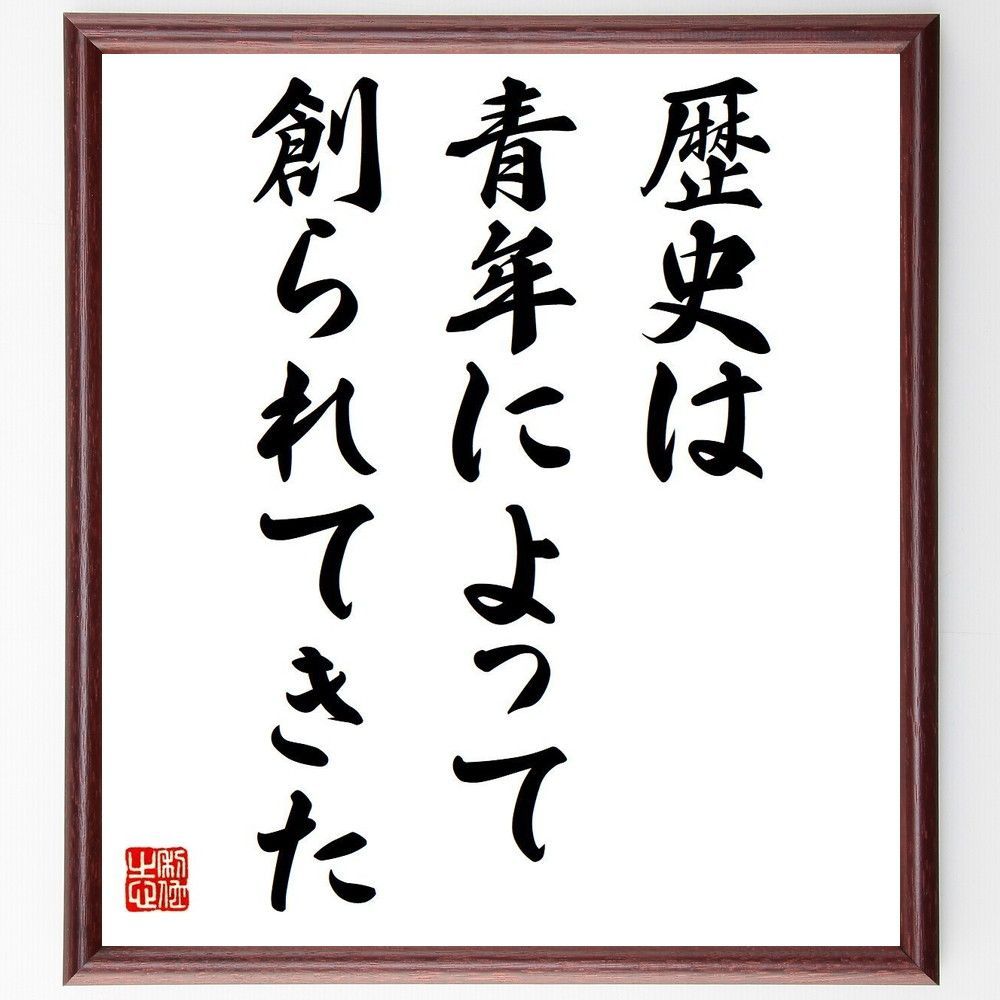 歴史は
青年によって
創られてきた